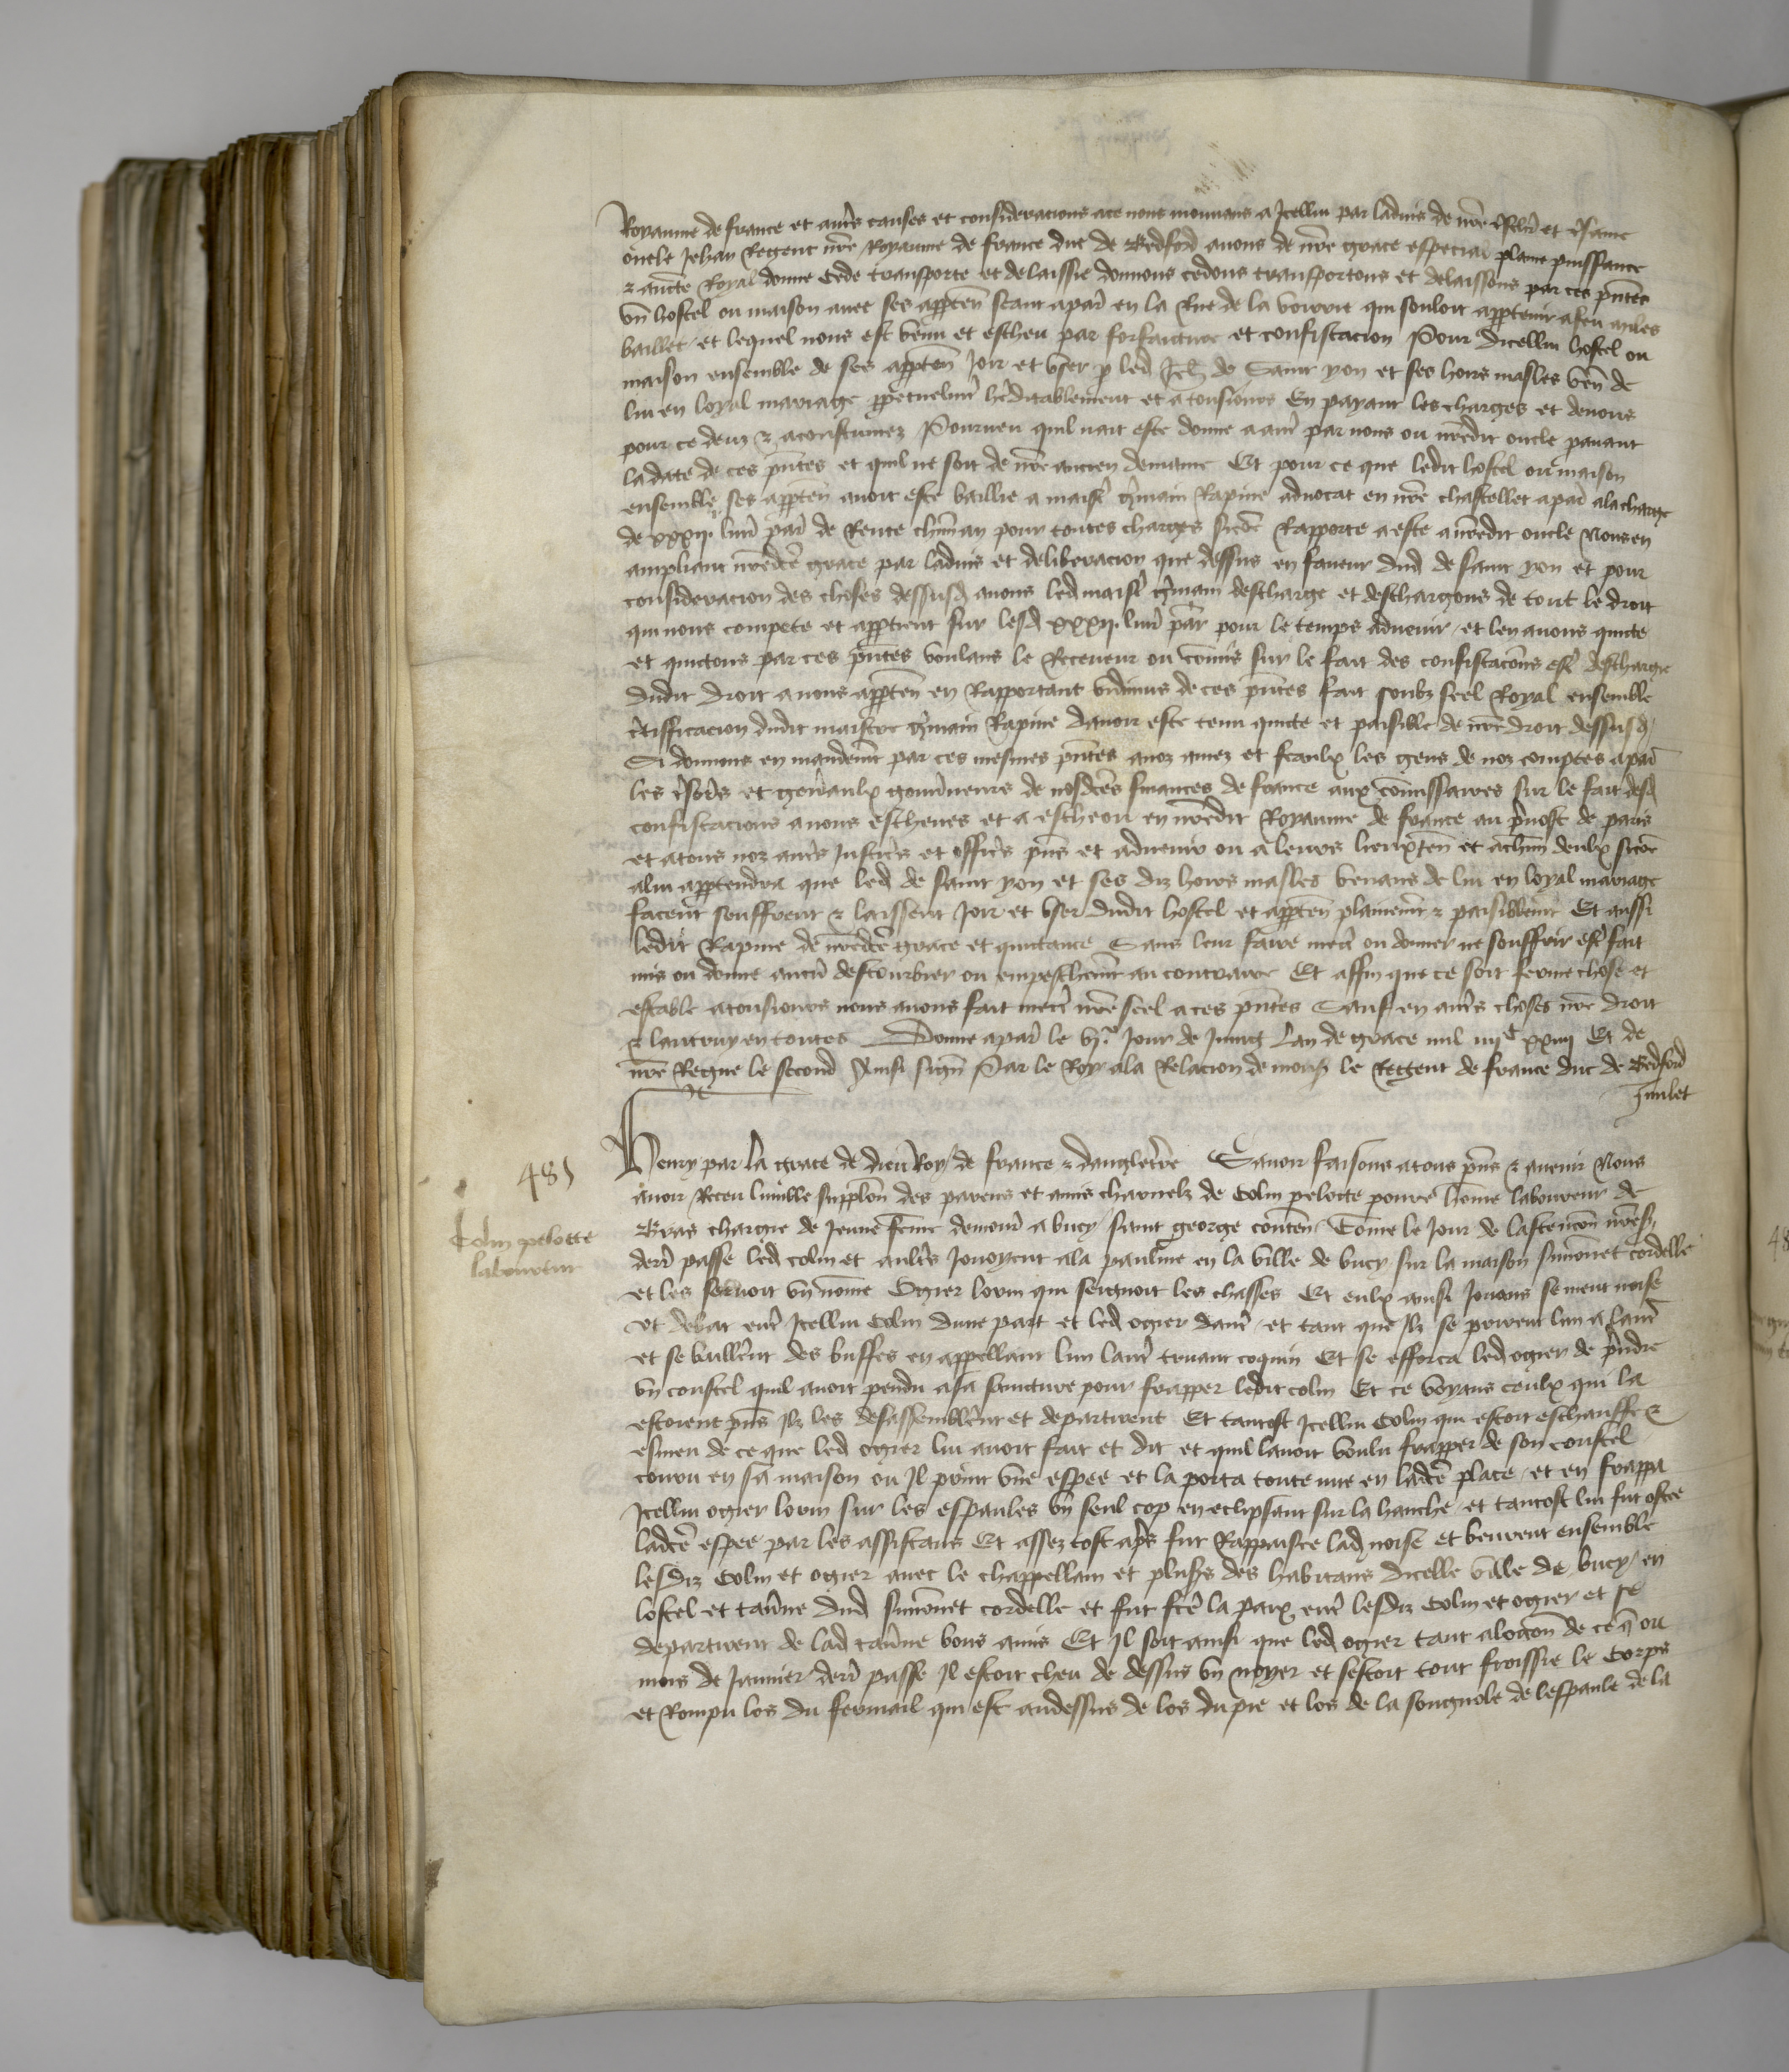 Royaume de france et autres causes et consideracions ace nous mouvans a Icellui par ladvis de nre treschier et tresame
oncle Jehan Regent nre Royaume de france duc de Bedford avons de nre grace especial plaine puissance
& aucte Royal donne cede transporte et delaissie donnons cedons transportons et delaissons par ces pntes
un hostel ou maison avec ses apparten seant apar en la Rue de la voirrie qui souloit appartenir a feu miles
baillet et lequel nous est venu et escheu par forfaiture et confiscacion Pour dicellui hostel ou
maison ensemble de ses apparten Joir et user p led Jeh de Saint yon et ses hoirs masles ven de
lui en loyal mariage perpetuelmt hereditablement et atousiours En payant les charges et devoirs
pour ce deuz & acoustumez Pourveu quil nait este donne aautre par nous ou nredit oncle pavant
la date de ces pntes et quil ne soit de nre ancien demaine Et pour ce que ledit hostel ou maison
ensemble ses apparten avoit este baillie a maistre germain Rapine advocat en nre chastellet apar ala charge
de xxxii livres par de Rente chun an pour toutes charges sicoe Rapporte a este a nredit oncle Nous en
ampliant nredce grace par ladvis et deliberacion que dessus en faveur dud de saint yon et pour
consideracion des choses dessusd avons led maistre germain descharge et deschargons de tout le droit
qui nous compete et appartient sur lesd xxxii livres par pour le temps advenir et len avons quicte
et quictons par ces pntes voulans le Receveur ou commis sur le fait des confiscacons estre descharge
dudit droit a nous apparten en Rapportant vidimus de ces pntes fait soubz seel Royal ensemble
certifficacion dudit maistre germain Rapine davoir este tenu quicte et paisible de nre droit dessusd
Si donnons en mandemt par ces mesmes pntes anoz amez et feaulx les gens de noz comptes apar
les tresors et generaulx gouverneurs de nosdces finances de france aux comissaires sur le fait desd
confiscacions a nous escheues et a escheoir en nredit Royaume de france au prevost de paris
et atous noz autres Justiciers et officiers pns et advenir ou a leurs lieuxten et achun deulx sicoe
alui appartendra que led de saint yon et ses diz hoirs masles venans de lui en loyal mariage
facent seuffrent & laissent Joir et user dudit hostel et apparten plainemt & paisiblemt Et aussi
ledit Rapine de nredce grace et quictance Sans leur faire mettre ou donner ne souffrir estre fait
mis ou donne aucun destourbier ou empeschemt au contraire Et affin que ce soit ferme chose et
estable atousiours nous avons fait mettre nre seel a ces pntes Sauf en autres choses nre droit
& lautruy en toutes Donne apar le vie Jour de Juing Lan de grace mil iiiic xxiiii Et de
nre Regne le second Ainsi signe Par le Roy ala Relacion de mons le Regent de france duc de Bedford
Jmilet
485
Henry par la grace de dieu Roy de france & dangleterre Savoir faisons atous pns & avenir Nous
avoir Receu lumble supplon des parens et amis charnelz de Colin pelotte povre homme laboureur de
Colin pelotte
laboureur
Bras chargie de Jeune feme demour a bucy saint george conten Come le Jour de lascencon nres
derr passe led colin et aultres Jouoyent ala paulme en la ville de bucy sur la maison simonnet cordelle
et les servoit un nomme Ogier lorin qui seignoit les chasses Et eulx ainsi Jouans se meut noise
et debat entre Icellui Colin dune part et led ogier dautre et tant que Ilz se prirent lun a lautre
et se baillerent des buffes en appellant lun lautre truant coquin Et se efforca led ogier de prendre
un coustel quil avoit pendu a sa saincture pour frapper ledit colin Et ce voyans ceulx qui la
estoient pns Ilz les desassemblerent et departirent Et tantost Icellui Colin qui estoit eschauffe &
esmeu de ce que led ogier lui avoit fait et dit et quil lavoit voulu frapper de son coustel
couru en sa maison ou Il print une espee et la porta toute nue en ladce place et en frappa
Icellui ogier lorin sur les espaules un seul cop en eclipsant sur la hanche et tantost lui fut ostee
ladce espee par les assistans Et assez tost apres fut Rappaisee lad noise et beurent ensemble
lesdiz Colin et ogier avec le chappellain et plusrs des habitans dicelle ville de bucy en
lostel et taverne dud simonnet cordelle et fut fce la paix entre lesdiz Colin et ogier et se
departirent de lad taverne bons amis Et Il soit ainsi que led ogier tant alocon de ce q ou
mois de Janvier derr passe Il estoit cheu de dessus un noyer et sestoit tout froissie le Corps
et Rompu los du fermail qui est audessus de los du pie et los de la songnole de lespaule de la